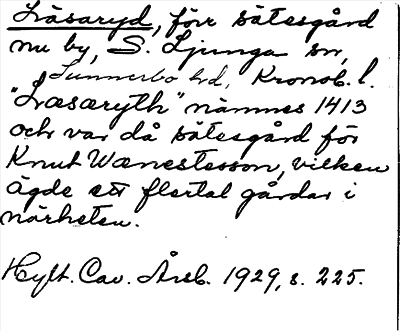 Läsaryd, förr sätesgård
nu by, S. Ljunga sn,
Sunnerbo hd, Kronob. l.
"Læsæryth" nämnes 1413
och var då sätesgård för
Knut Wænestesson, vilken
ägde ett flertal gårdar i
närheten.
Hylt. Cav. Årsb. 1929, s. 225.